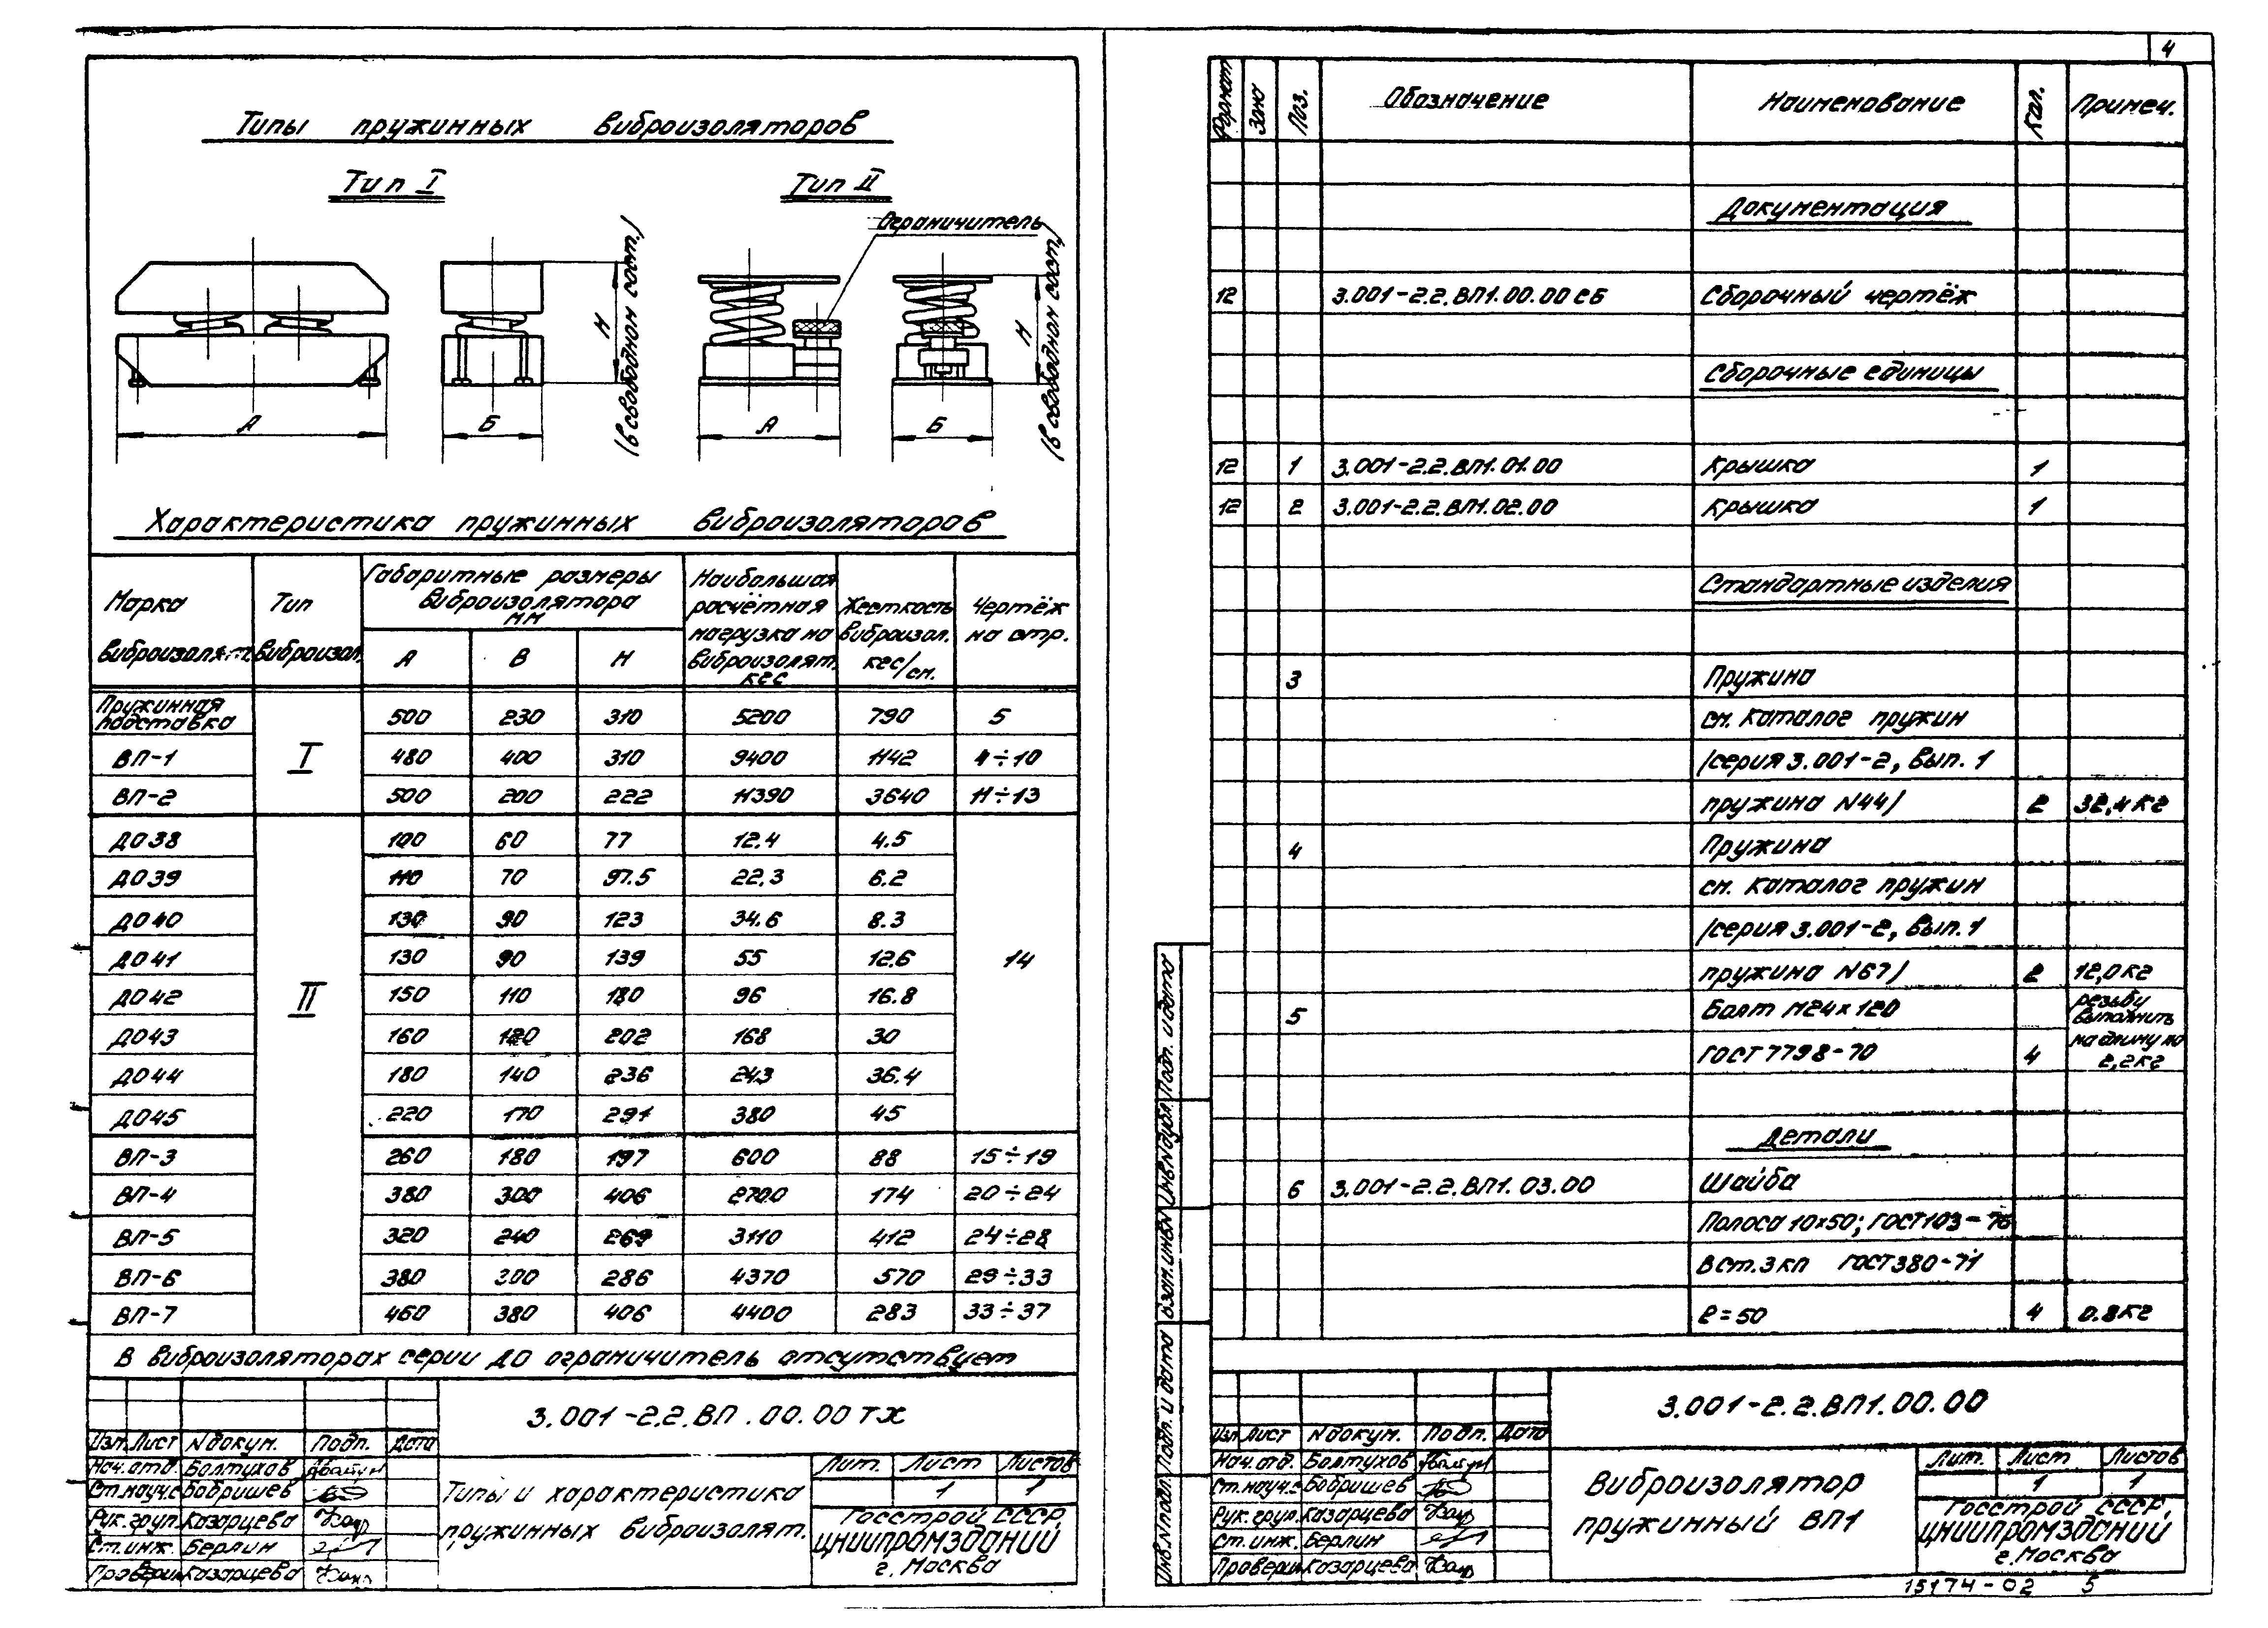 4
Типы пружинных виброизоляторов
Тип I
Тип II
Ограничитель
А
Б
Н
(в свободном сост.)
А
Б
Н
(в свободном сост.)
Характеристика пружинных виброизоляторов
Марка виброизолят. Тип виброизол. Габаритные размеры виброизолятора мм Наибольшая расчётная нагрузка на виброизолят. кгс Жесткость виброизол. кгс/см. Чертёж на стр.
А В Н
Пружинная подставка I 500 230 310 5200 790 5
ВП-1 480 400 310 9400 1142 4÷10
ВП-2 500 200 222 11390 3640 11÷13
ДО38 II 100 60 77 12.4 4.5 14
ДО39 110 70 97.5 22.3 6.2
ДО40 130 90 123 34.6 8.3
ДО41 130 90 139 55 12.6
ДО42 150 110 180 96 16.8
ДО43 160 120 202 168 30
ДО44 180 140 236 243 36.4
ДО45 220 170 291 380 45
ВП-3 260 180 197 600 88 15÷19
ВП-4 380 300 406 2700 174 20÷24
ВП-5 320 240 269 3110 412 24÷28
ВП-6 380 300 286 4370 570 29÷33
ВП-7 460 380 406 4400 283 33÷37
В виброизоляторах серии ДО ограничитель отсутствует
3.001-2.2.ВП.00.00ТХ
Изм. Лист N докум. Подп. Дата
Нач.отд. Болтухов
Ст.науч.с Бобришев
Рук.груп. Казарцева
Ст.инж. Берлин
Проверил Казарцева
Типы и характеристика
пружинных виброизолят.
Лит. Лист Листов
1 1
Госстрой СССР,
ЦНИИПРОМЗДАНИЙ
г.Москва
Формат Зона Поз. Обозначение Наименование Кол. Примеч.
Документация
12 3.001-2.2.ВП1.00.00СБ Сборочный чертёж
Сборочные единицы
12 1 3.001-2.2.ВП1.01.00 Крышка 1
12 2 3.001-2.2.ВП1.02.00 Крышка 1
Стандартные изделия
3 Пружина
см. каталог пружин
/серия 3.001-2, Вып. 1
пружина N44/ 2 32,4кг
4 Пружина
см. каталог пружин
/серия 3.001-2, Вып. 1
пружина N67/ 2 12,0кг
5 Болт М24×120 резьбу выполнить
ГОСТ 7798-70 4 на длину 110
2,2кг
Детали
6 3.001-2.2.ВП1.03.00 Шайба
Полоса 10×50; ГОСТ103-76
В ст.3кп ГОСТ380-71
ℓ=50 4 0.8кг
Подп. и дата
Инв.N дубл.
Взам.инв.N
Подп. и дата
Инв.N подл.
3.001-2.2.ВП1.00.00
Изм Лист N докум. Подп. Дата
Нач.отд. Болтухов
Ст.науч.с Бобришев
Рук.груп. Казарцева
Ст.инж. Берлин
Проверил Казарцева
Виброизолятор
пружинный ВП1
Лит. Лист Листов
1 1
Госстрой СССР,
ЦНИИПРОМЗДАНИЙ
г.Москва
15174-02 5